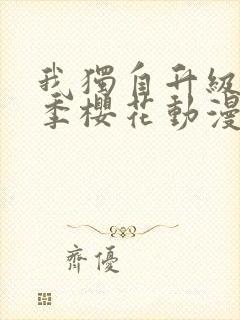 我獨自升級
季櫻花動漫
齊優